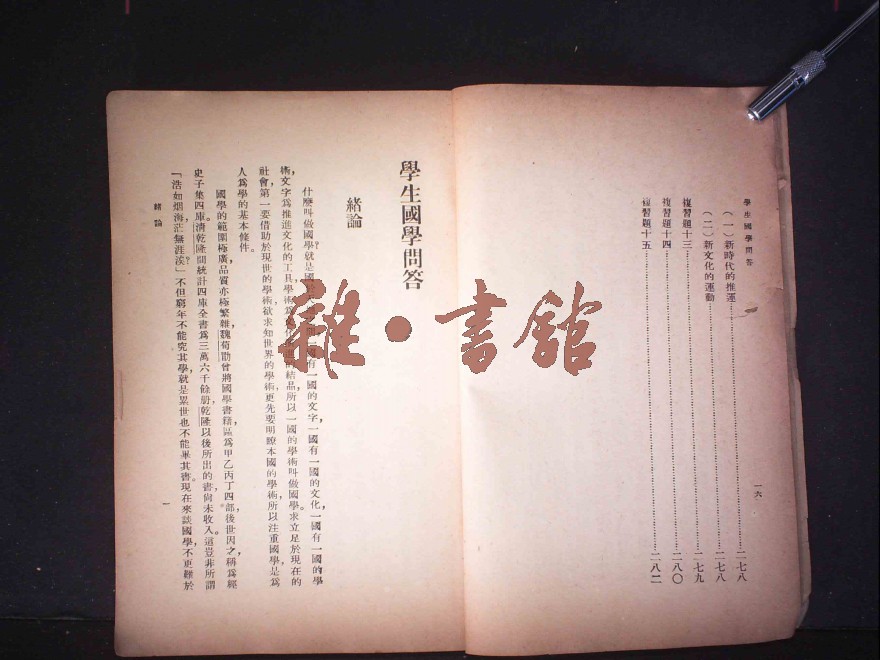 學生國學問答
(一)新時代的推運……二七八
(二)新文化的運動……二七八
複習題十三……二七九
複習題十四……二八〇
複習題十五……二八二
一六
學生國學問答
緒論
什麼叫做國學?就是國 一國有一國的文字,一國有一國的文化,一國有一國的學
術,文字爲推進文化的工具,學術爲 的結晶,所以一國的學術叫做國學。求立足於現在的
社會,第一要借助於現世的學術,欲求知世界的學術,更先要明瞭本國的學術,所以注重國學,是爲
人爲學的基本條件。
國學的範圍極廣,品質亦極繁雜,魏荀勖曾將國學書籍,區爲甲乙丙丁四部,後世因之,稱爲經
史子集四庫。清乾隆間統計四庫全書爲三萬六千餘册,乾隆以後所出的書,尙未收入。這豈非所謂
「浩如烟海,茫無涯涘?」不但窮年不能究其學,就是累世也不能畢其書。現在來談國學,不更難於
緒論
一
雜·書館